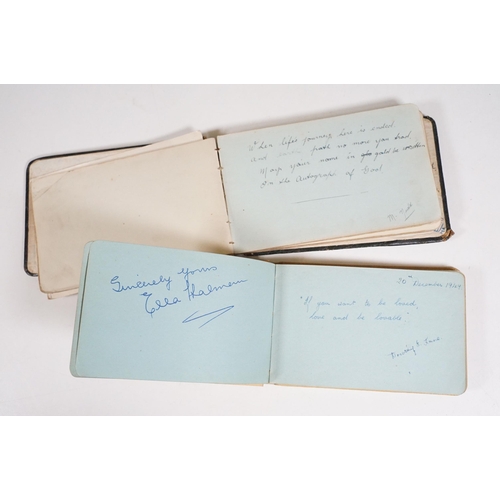 When life's journey here is ended
And earth's path no more you tread
May your name in gold be written
In the Autograph of God
Sincerely yours
Ella
30th December 19
"If you want to be loved,
love and be lovable"
Dorothy